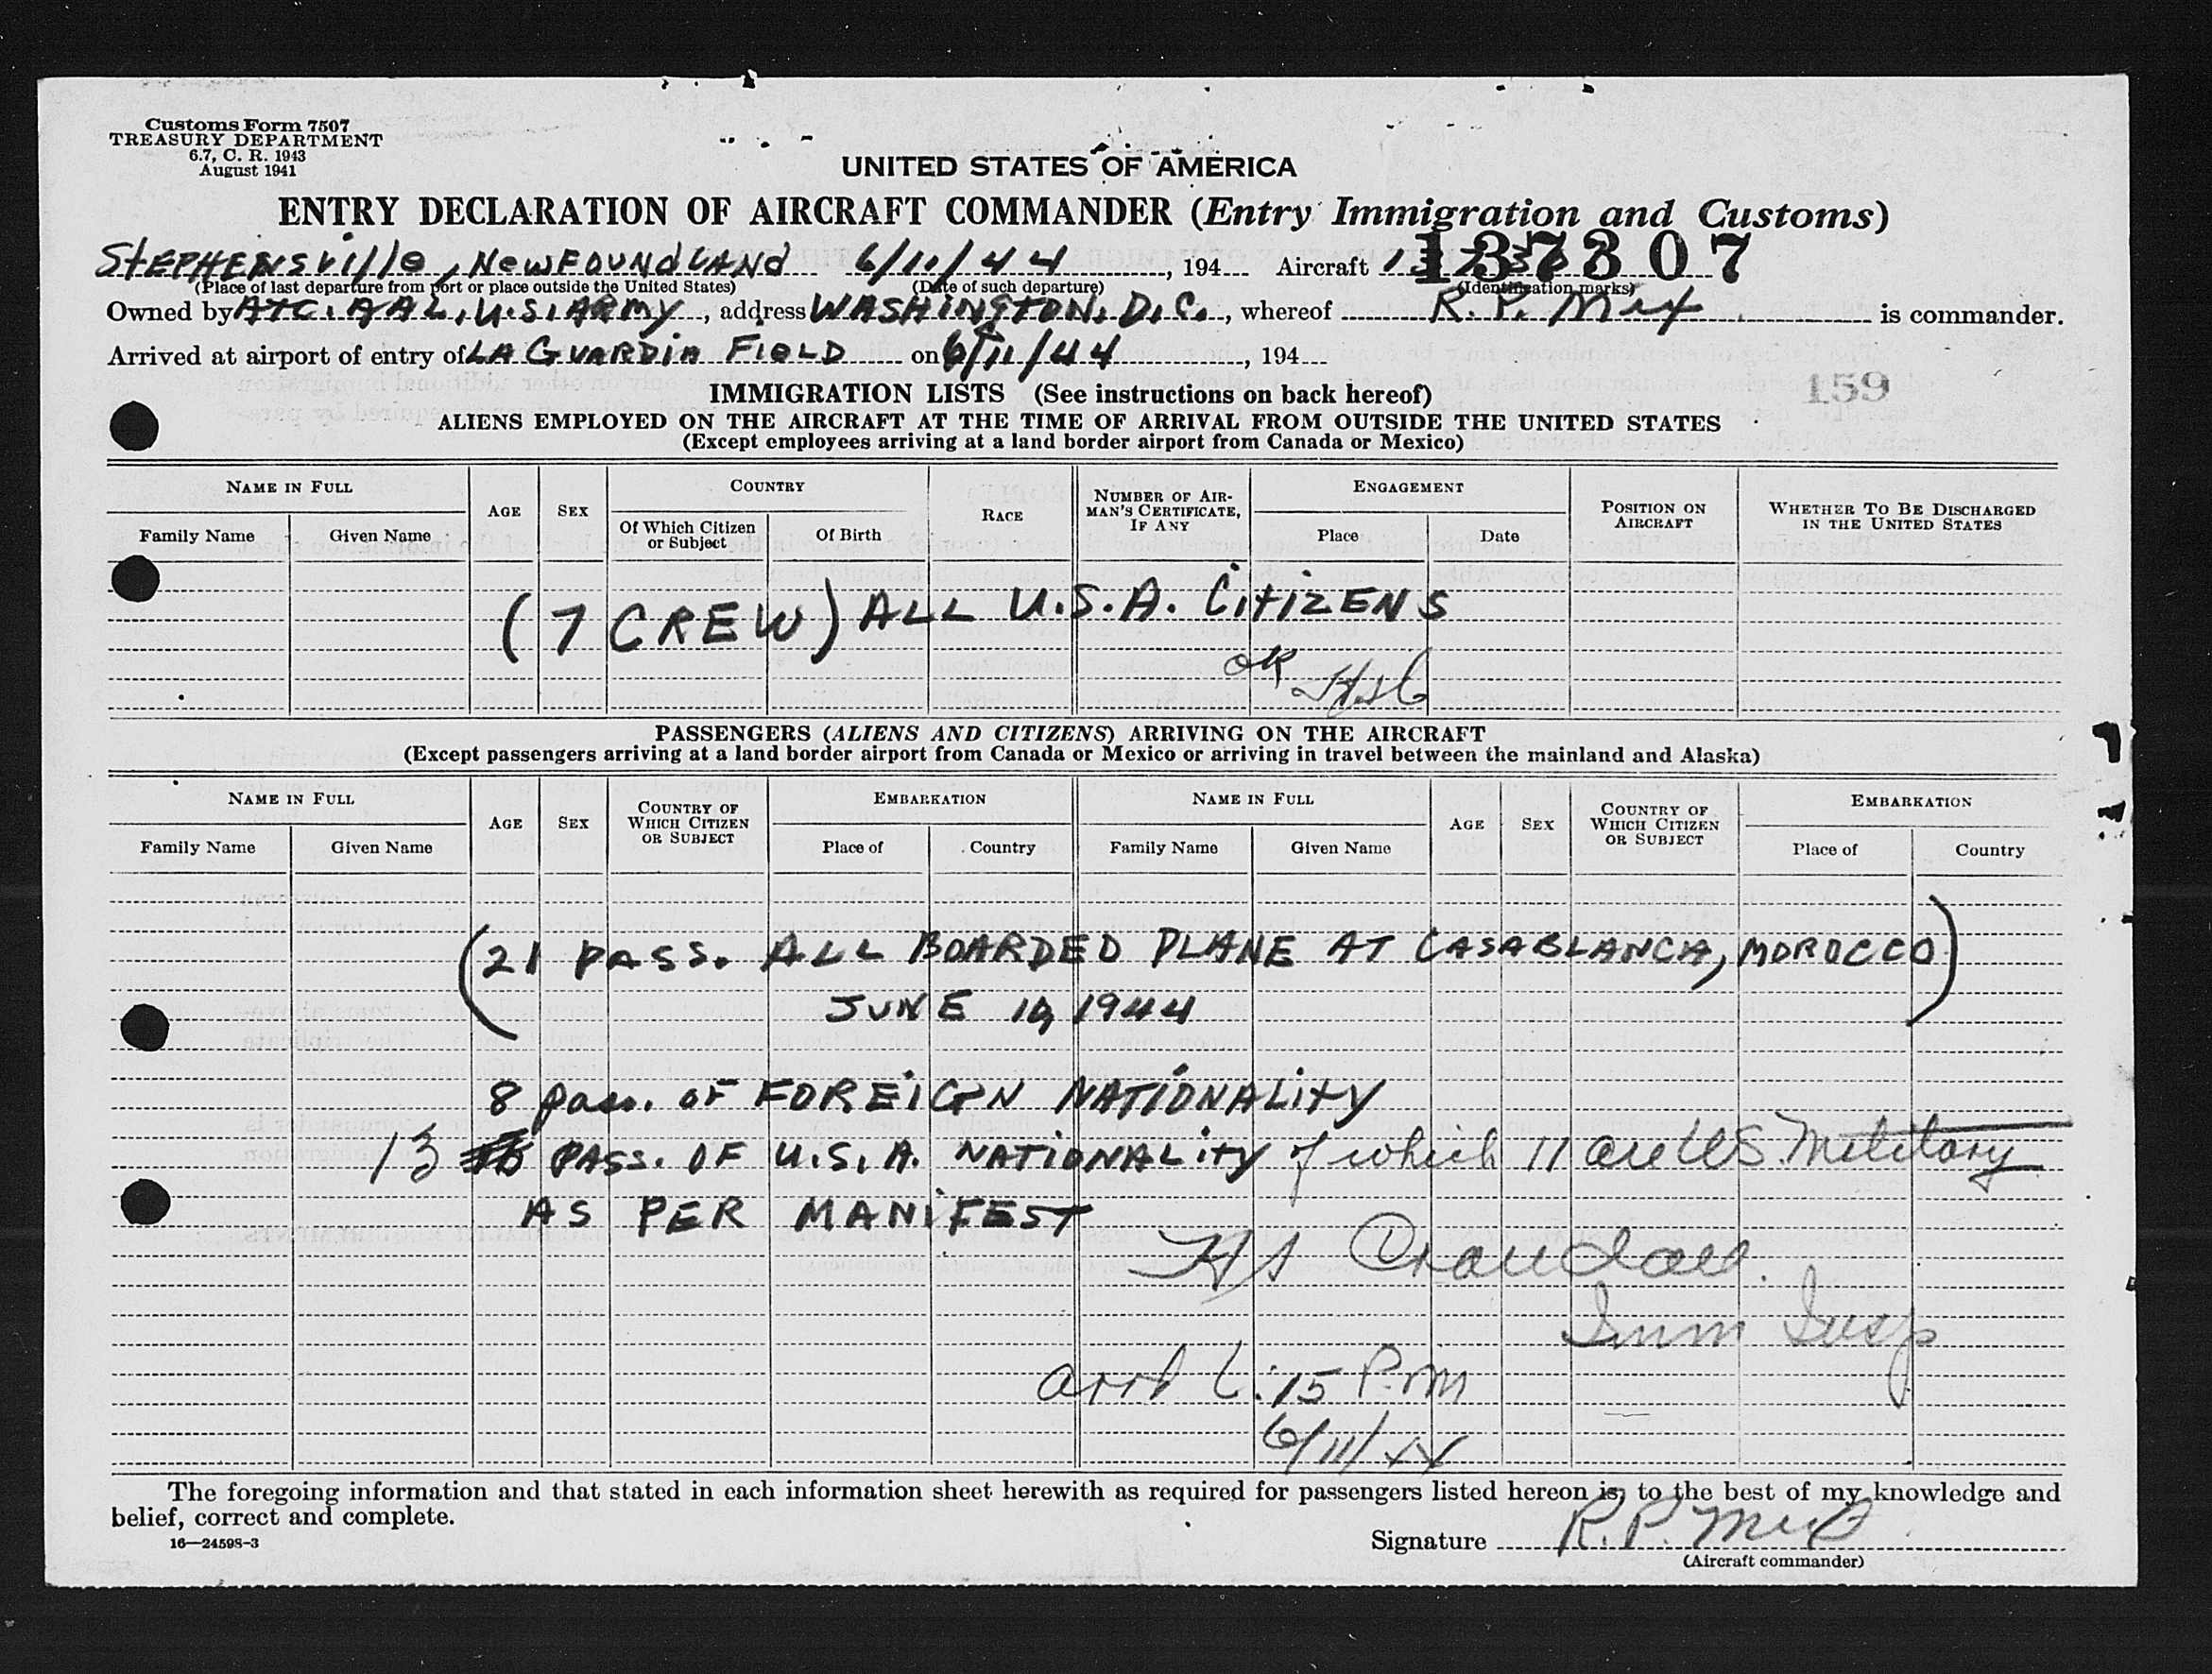 Customs Form 7507
TREASURY DEPARTMENT
6.7, C. R. 1943
August 1941
UNITED STATES OF AMERICA
ENTRY DECLARATION OF AIRCRAFT COMMANDER (Entry Immigration and Customs)
137307
STEPHENSVille, NEWFOUNdLANd 6/11/44, 194 Aircraft
(Place of last departure from port or place outside the United States) (Date of such departure) (Identification marks)
Owned by ATC. AAL, U.S. ARMY, address WASHINGTON, D.C., whereof R. P. is commander.
Arrived at airport of entry of LA GUARDIA FIELD on 6/11/44, 194
159
IMMIGRATION LISTS (See instructions on back hereof)
ALIENS EMPLOYED ON THE AIRCRAFT AT THE TIME OF ARRIVAL FROM OUTSIDE THE UNITED STATES
(Except employees arriving at a land border airport from Canada or Mexico)
NAME IN FULL AGE SEX COUNTRY RACE NUMBER OF AIRMAN'S CERTIFICATE, IF ANY ENGAGEMENT POSITION ON AIRCRAFT WHETHER TO BE DISCHARGED IN THE UNITED STATES
Family Name Given Name Of Which Citizen or Subject Of Birth Place Date
(7 CREW) ALL U.S.A. CitizENS
OK
PASSENGERS (ALIENS AND CITIZENS) ARRIVING ON THE AIRCRAFT
(Except passengers arriving at a land border airport from Canada or Mexico or arriving in travel between the mainland and Alaska)
NAME IN FULL AGE SEX COUNTRY OF WHICH CITIZEN OR SUBJECT EMBARKATION NAME IN FULL AGE SEX COUNTRY OF WHICH CITIZEN OR SUBJECT EMBARKATION
Family Name Given Name Place of Country Family Name Given Name Place of Country
(21 PASS. ALL BOARDED PLANE AT CASABLANCA, MOROCCO)
JUNE 10, 1944
8 pass. OF FOREIGN NATIONALITY
13 PASS. OF U.S.A. NATIONALITY of which 11 are US. Military
AS PER MANIFEST
HS Crandall.
Imm Insp
arrd 6:15 P.M
6/11/44
The foregoing information and that stated in each information sheet herewith as required for passengers listed hereon is, to the best of my knowledge and
belief, correct and complete.
16—24598-3
Signature R. P.
(Aircraft commander)